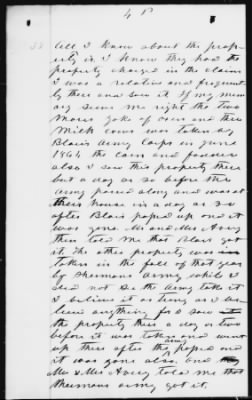 4 P
All I know about the prop-
erty is I know they had the
property charged in the claim
I was a relative and frequent
ly there and saw it If my mem
ory serves me right the two
Mares yoke of oxen and three
Milk cows was taken by
Blairs Army Corps in June
1864 the corn and fodder
also I saw this property there
but a day or so before the
army passed along and was at
their house in a day or so
after Blair passed up and it
was gone Mr and Mrs Avery
then told me that Blair got
it. The other property was
taken in the fall of that year
by Shermans army while I
did not see the Army take it
I believe it as firmly as I be-
lieve anything for I saw
the property there a day or two
before it was taken and went
up there after the army passed and
it was gone also and
Mr & Mrs Avery told me that
Shermans army got it.